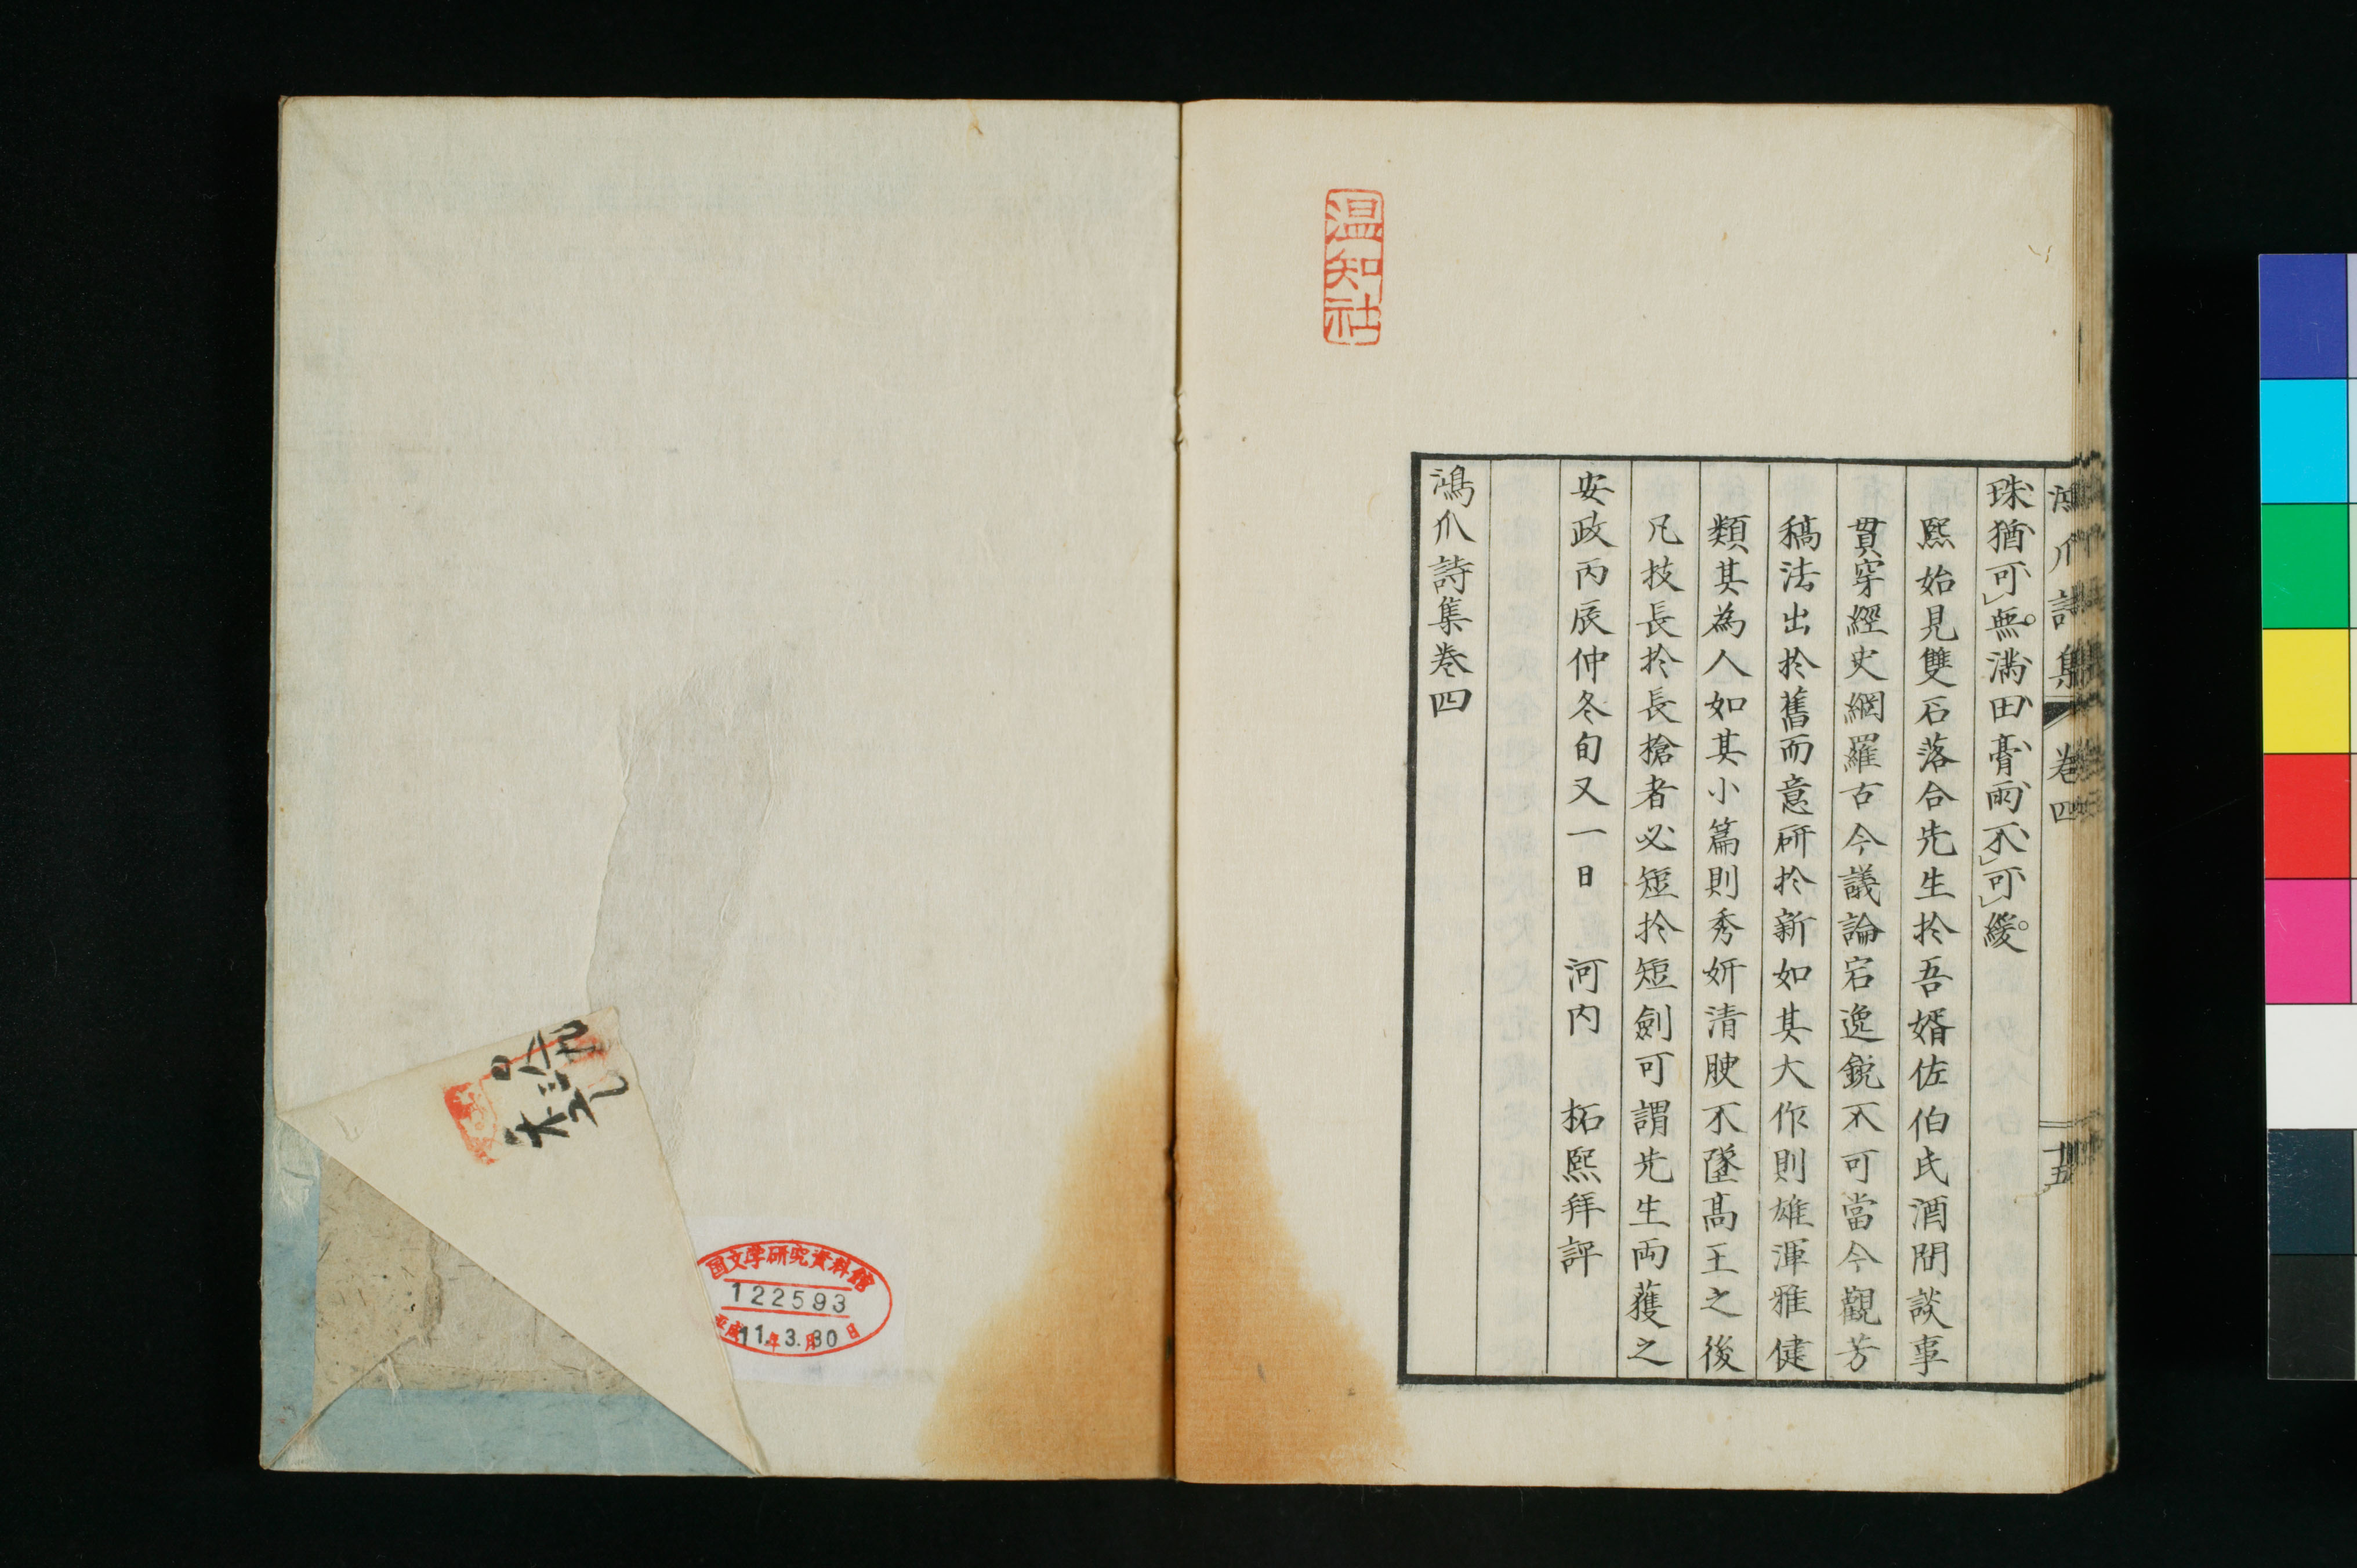 鴻爪詩集 卷四 十五
珠猶可無滿田膏雨不可緩
熙始見雙石落合先生於吾婿佐伯氏酒間談事
貫穿經史網羅古今議論宕逸銳不可當今觀芳
稿法出於舊而意研於新如其大作則雄渾雅健
類其為人如其小篇則秀妍清腴不墜高王之後
凡技長於長槍者必短於短劍可謂先生両獲之
安政丙辰仲冬旬又一日 河内 拓熙拜評
鴻爪詩集卷四
温知社
国文学研究資料館
122593
平成11年3月30日